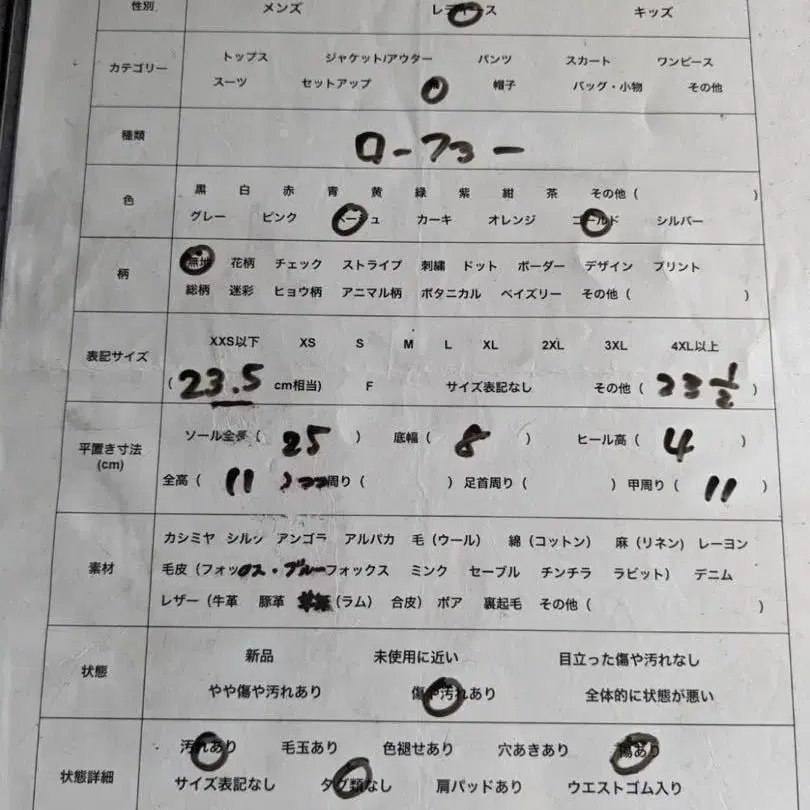 性別 メンズ レディース キッズ
カテゴリー
トップス ジャケット/アウター パンツ スカート ワンピース
スーツ セットアップ 帽子 バッグ・小物 その他
種類 ローファー
色
黒 白 赤 青 黄 緑 紫 紺 茶 その他 ( )
グレー ピンク ベージュ カーキ オレンジ ゴールド シルバー
柄
無地 花柄 チェック ストライプ 刺繍 ドット ボーダー デザイン プリント
総柄 迷彩 ヒョウ柄 アニマル柄 ボタニカル ペイズリー その他 ( )
表記サイズ
XXS以下 XS S M L XL 2XL 3XL 4XL以上
( 23.5 cm相当) F サイズ表記なし その他 ( 23 1/2 )
平置き寸法
(cm)
ソール全長 ( 25 ) 底幅 ( 8 ) ヒール高 ( 4 )
全高 ( 11 周り ( ) 足首周り ( ) 甲周り ( 11 )
素材
カシミヤ シルク アンゴラ アルパカ 毛 (ウール) 綿 (コットン) 麻 (リネン) レーヨン
毛皮 (フォックス・ブルーフォックス ミンク セーブル チンチラ ラビット) デニム
レザー (牛革 豚革 (ラム) 合皮) ボア 裏起毛 その他 ( )
状態
新品 未使用に近い 目立った傷や汚れなし
やや傷や汚れあり 傷や汚れあり 全体的に状態が悪い
状態詳細
汚れあり 毛玉あり 色褪せあり 穴あきあり 傷あり
サイズ表記なし タグ類なし 肩パッドあり ウエストゴム入り